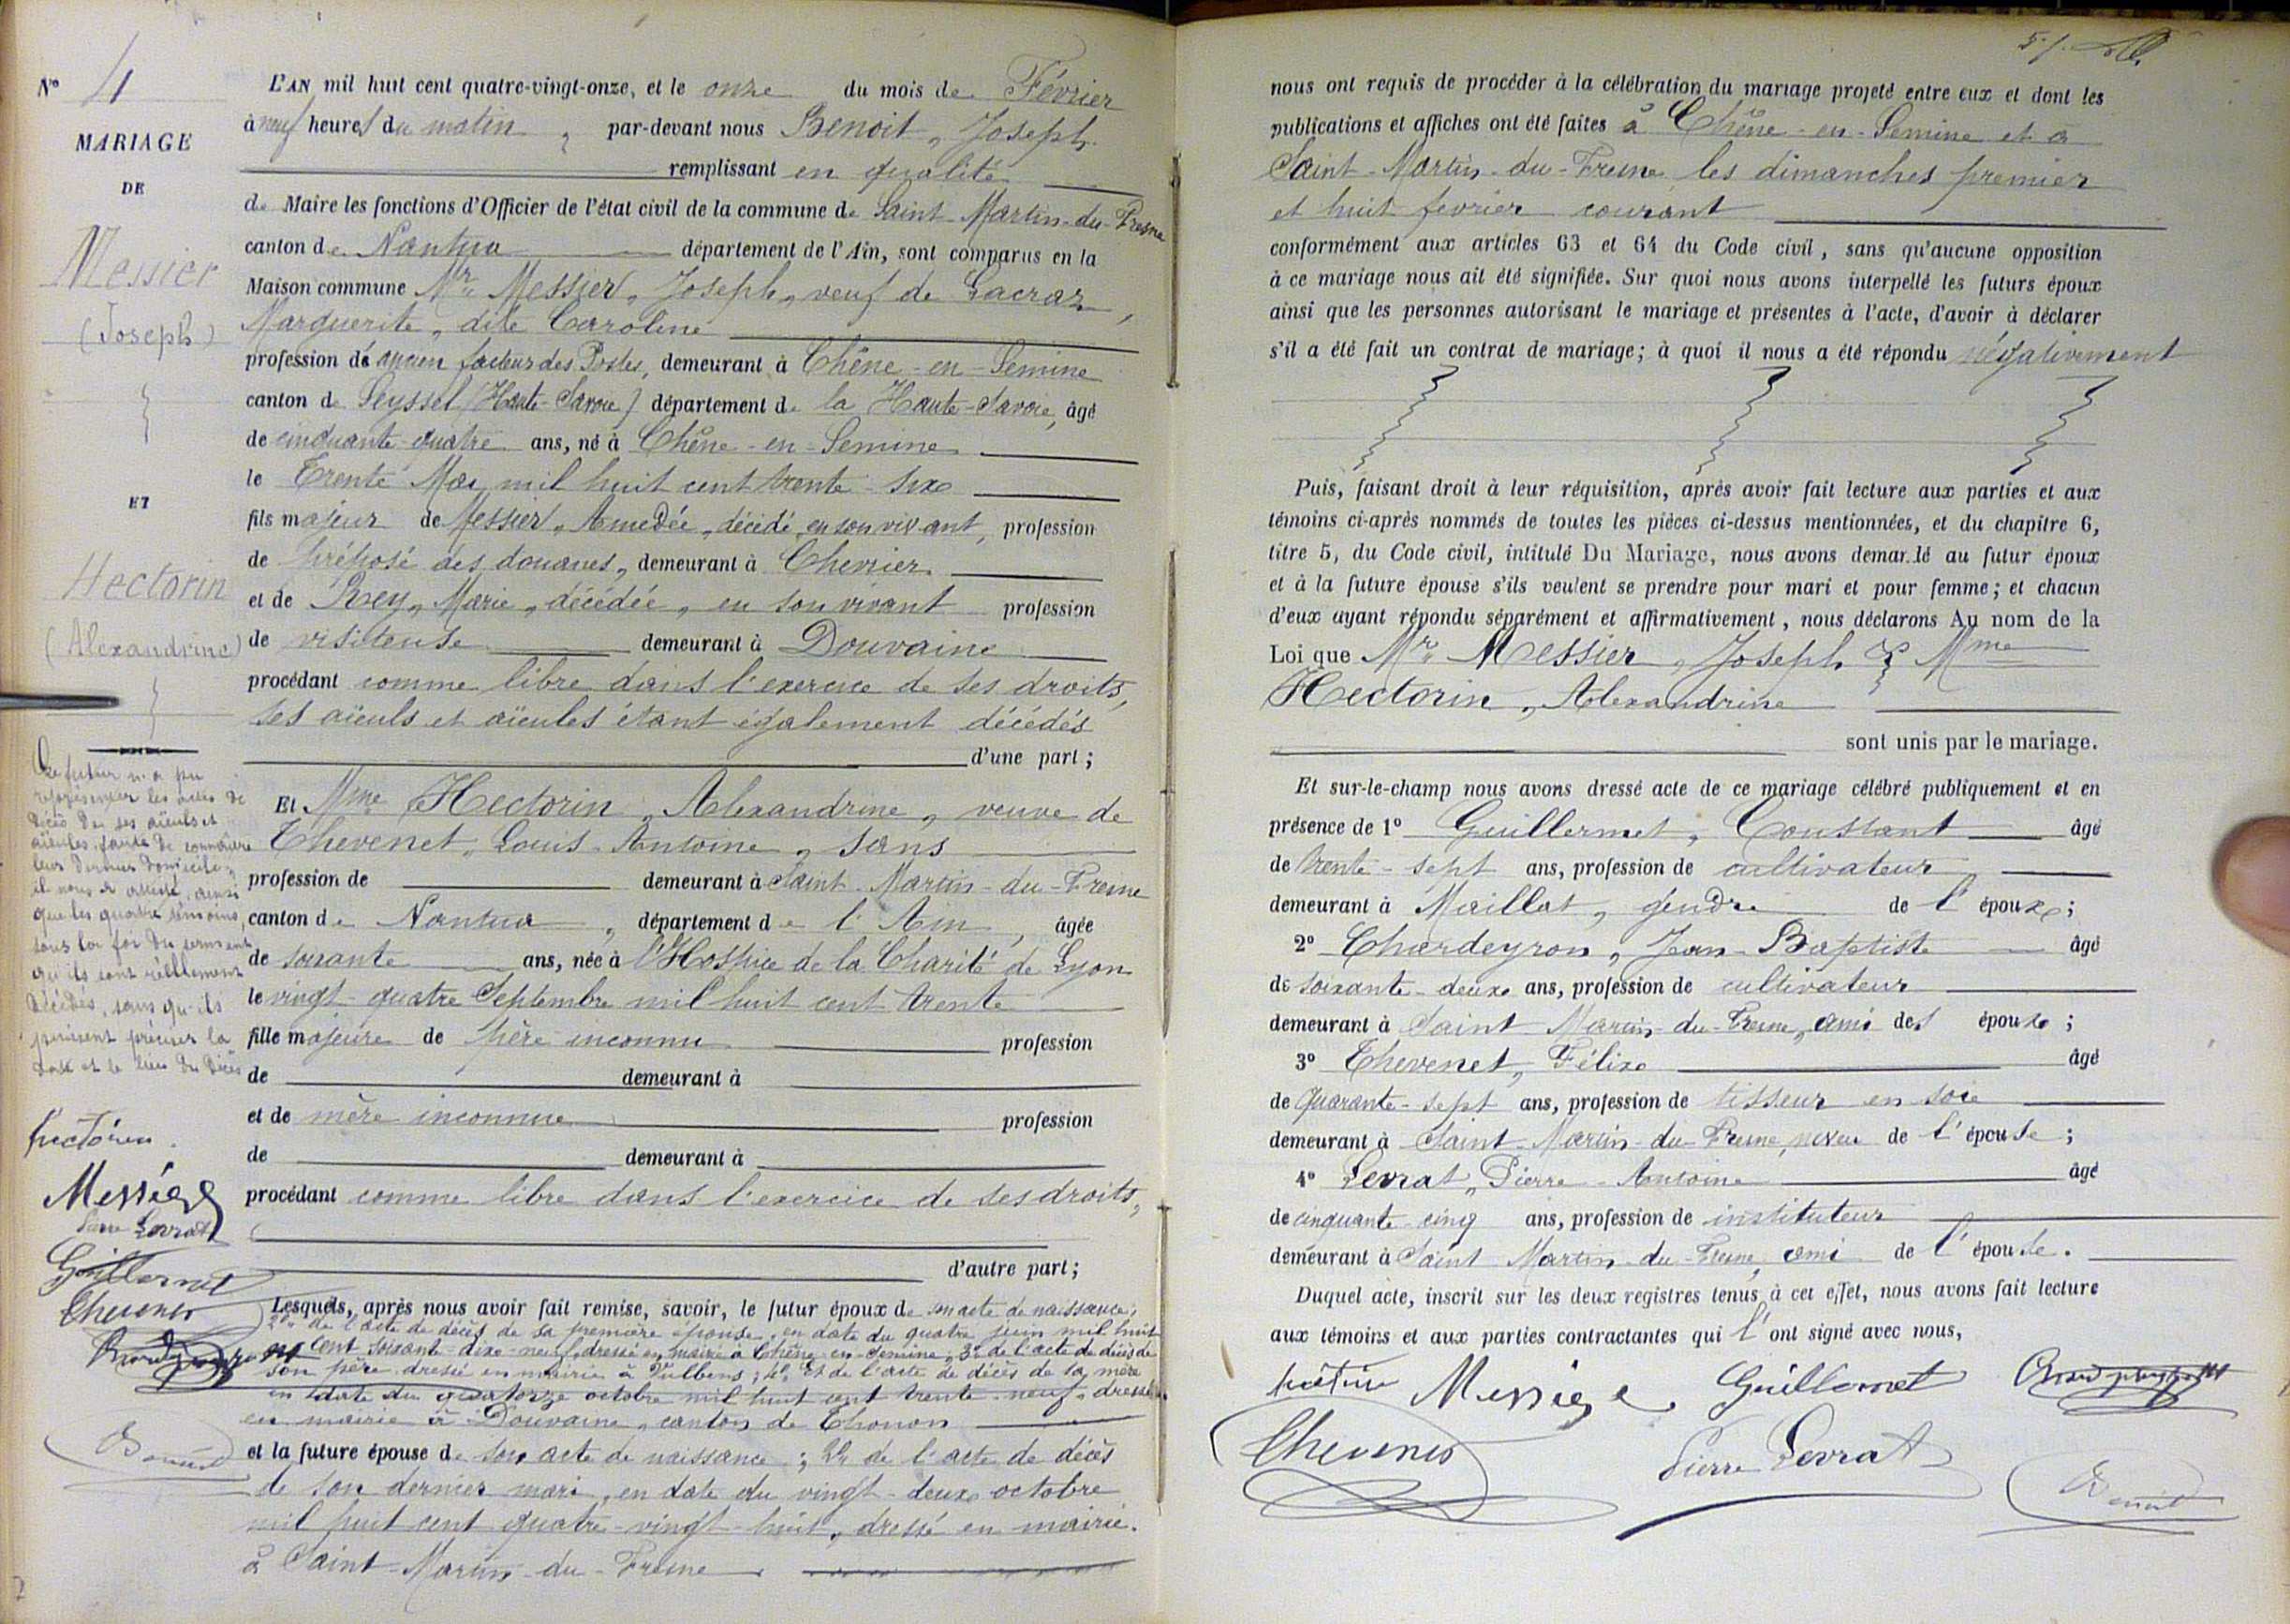 N° 4
MARIAGE
DE
Messier
(Joseph)
ET
Hectorin
(Alexandrine)
Le futur n'a pu
représenter les actes de
décès de ses aïeuls et
aïeules, faute de connaître
leur dernier domicile ;
il nous a attesté, ainsi
que les quatre témoins,
sous la foi du serment
qu'ils sont réellement
décédés, sans qu'ils
puissent préciser la
date et le lieu du décès
hectorin
Messier
Pierre Levrat
Guillermet
Thevenet
Benoit
L'AN mil huit cent quatre-vingt-onze, et le onze du mois de Février
à neuf heures du matin, par-devant nous Benoit, Joseph
remplissant en qualité
de Maire les fonctions d'Officier de l'état civil de la commune de Saint-Martin-du-Fresne
canton de Nantua département de l'Ain, sont comparus en la
Maison commune Mr Messier, Joseph, veuf de Lacraz,
Marguerite, dite Caroline
profession de ancien facteur des Postes, demeurant à Chêne-en-Semine
canton de Seyssel (Haute-Savoie) département de la Haute-Savoie, âgé
de cinquante-quatre ans, né à Chêne-en-Semine
le Trente Mai mil huit cent trente-six
fils majeur de Messier, Amedée, décédé, en son vivant, profession
de préposé des douanes, demeurant à Chevrier
et de Rey, Marie, décédée, en son vivant profession
de visiteuse demeurant à Douvaine
procédant comme libre dans l'exercice de ses droits,
ses aïeuls et aïeules étant également décédés
d'une part ;
Et Mme Hectorin, Alexandrine, veuve de
Thevenet, Louis-Antoine, sans
profession de demeurant à Saint-Martin-du-Fresne
canton de Nantua, département de l'Ain, âgée
de soixante ans, née à l'Hospice de la Charité de Lyon
le vingt-quatre Septembre mil huit cent trente
fille majeure de père inconnu profession
de demeurant à
et de mère inconnue profession
de demeurant à
procédant comme libre dans l'exercice de ses droits,
d'autre part ;
Lesquels, après nous avoir fait remise, savoir, le futur époux de son acte de naissance ;
2° de l'acte de décès de sa première épouse, en date du quatre juin mil huit
cent soixante-dix-neuf, dressé en mairie à Chêne-en-Semine ; 3° de l'acte de décès de
son père dressé en mairie à Vulbens ; 4° Et de l'acte de décès de sa mère
en date du quatorze octobre mil huit cent trente-neuf, dressé
en mairie à Douvaine, canton de Thonon
et la future épouse de son acte de naissance ; 2° de l'acte de décès
de son dernier mari, en date du vingt-deux octobre
mil huit cent quatre-vingt-huit, dressé en mairie
à Saint-Martin-du-Fresne
nous ont requis de procéder à la célébration du mariage projeté entre eux et dont les
publications et affiches ont été faites à Chêne-en-Semine et à
Saint-Martin-du-Fresne les dimanches premier
et huit fevrier courant
conformément aux articles 63 et 64 du Code civil, sans qu'aucune opposition
à ce mariage nous ait été signifiée. Sur quoi nous avons interpellé les futurs époux
ainsi que les personnes autorisant le mariage et présentes à l'acte, d'avoir à déclarer
s'il a été fait un contrat de mariage ; à quoi il nous a été répondu négativement
Puis, faisant droit à leur réquisition, après avoir fait lecture aux parties et aux
témoins ci-après nommés de toutes les pièces ci-dessus mentionnées, et du chapitre 6,
titre 5, du Code civil, intitulé Du Mariage, nous avons demandé au futur époux
et à la future épouse s'ils veulent se prendre pour mari et pour femme ; et chacun
d'eux ayant répondu séparément et affirmativement, nous déclarons Au nom de la
Loi que Mr Messier, Joseph & Mme
Hectorin, Alexandrine
sont unis par le mariage.
Et sur-le-champ nous avons dressé acte de ce mariage célébré publiquement et en
présence de 1° Guillermet, Constant âgé
de trente-sept ans, profession de cultivateur
demeurant à Maillat, gendre de l'épouxe ;
2° Chardeyron, Jean-Baptiste âgé
de soixante-deux ans, profession de cultivateur
demeurant à Saint-Martin-du-Fresne, ami des époux ;
3° Thevenet, Félix âgé
de quarante-sept ans, profession de tisseur en soie
demeurant à Saint-Martin-du-Fresne, neveu de l'épouse ;
4° Levrat, Pierre-Antoine âgé
de cinquante-cinq ans, profession de instituteur
demeurant à Saint-Martin-du-Fresne, ami de l'épouse.
Duquel acte, inscrit sur les deux registres tenus à cet effet, nous avons fait lecture
aux témoins et aux parties contractantes qui l'ont signé avec nous,
Messier Guillermet
Thevenet Pierre Levrat Benoit